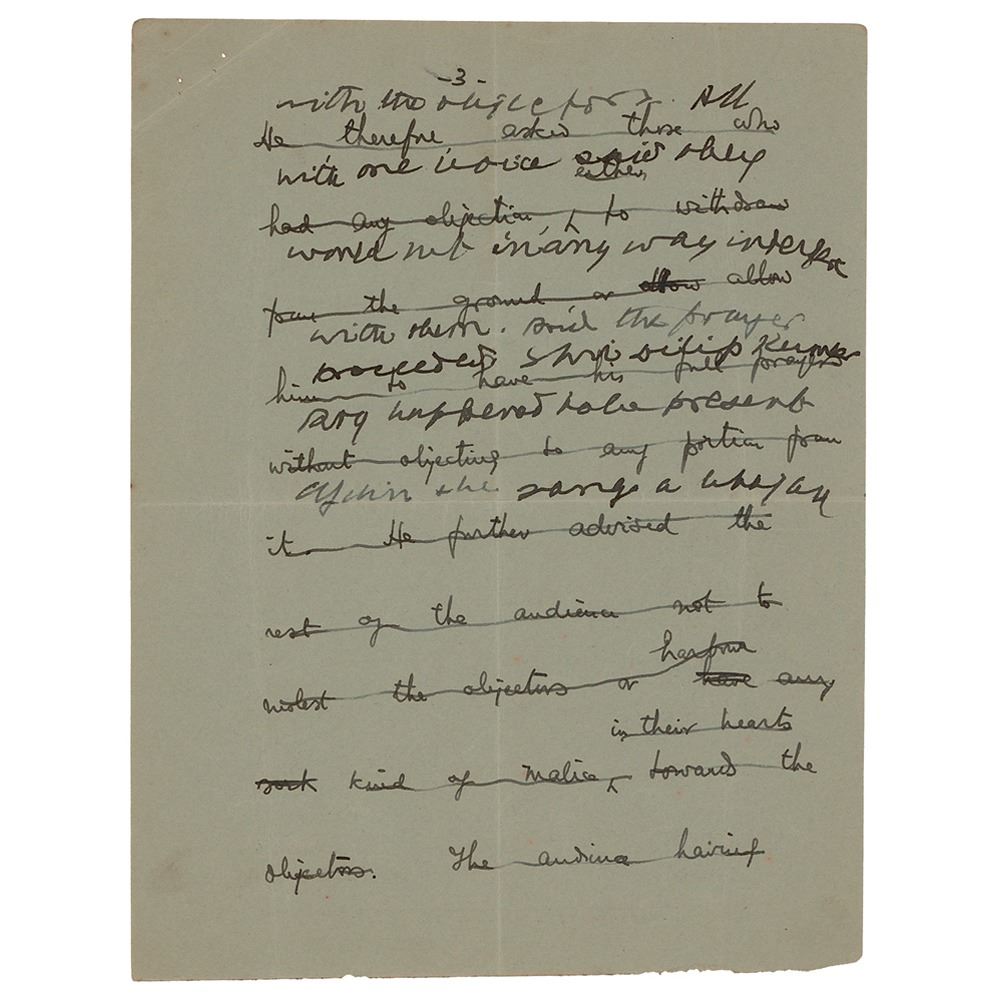 -3-
with the objectors. All
He therefore asked those who
with one voice said they
either
had any objection, to withdraw
would not in any way interfere
from the ground or allow allow
with them. said the prayer
proceeded Shri Dilip Kumar
him to have his full prayers
Roy happened to be present
without objecting to any portion from
sang a bhajan
it. He further advised the
rest of the audience not to
harbour
molest the objectors or have any
in their hearts
sort kind of malice, towards the
objectors. The audience having